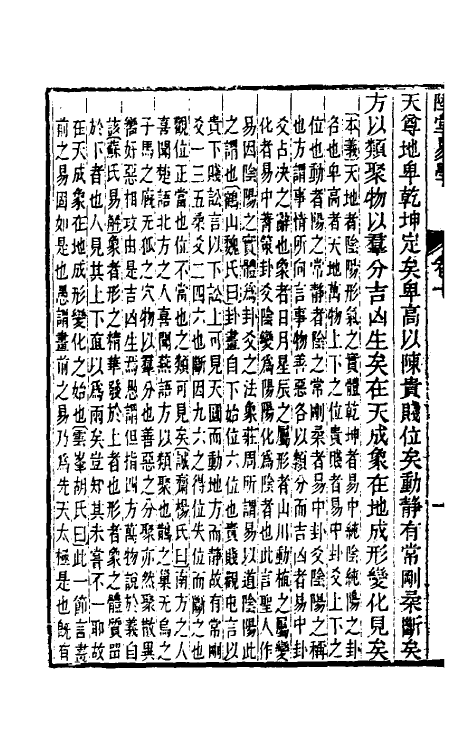 陸堂易學 卷十 一
天尊地卑乾坤定矣卑高以陳貴賤位矣動靜有常剛柔斷矣
方以類聚物以羣分吉凶生矣在天成象在地成形變化見矣
本義天地者陰陽形氣之實體乾坤者易中純陰純陽之卦
名也卑高者天地萬物上下之位貴賤者易中卦爻上下之
位也動者陽之常靜者陰之常剛柔者易中卦爻陰陽之稱
也方謂事情所向言事物善惡各以類分而吉凶者易中卦
爻占決之辭也象者日月星辰之屬形者山川動植之屬變
化者易中蓍策卦爻陰變爲陽陽化爲陰者也此言聖人作
易因陰陽之實體爲卦爻之法象莊周所謂易以道陰陽此
之謂也鶴山魏氏曰卦畫自下始位六位也貴賤觀屯言以
貴下賤訟言以下訟上可見天圓而動地方而靜故有常剛
爻一三五柔爻二四六也斷因九六之得位失位而斷之也
觀位正當也位不當也之類可見矣誠齋楊氏曰南方之人
喜聞楚語北方之人喜聞燕語方以類聚也鵲之巢无烏之
子馬之廐无狐之穴物以羣分也善惡之分聚亦然聚散異
嚮好惡相攻由是吉凶生焉愚謂但指四方萬物說於義自
該蘇氏易解象者形之精華發於上者也形者象之體質畱
於下者也人見其上下直以爲兩矣豈知其未嘗不一耶故
在天成象在地成形變化之始也雲峯胡氏曰此一節言畫
前之易因如是也愚謂畫前之易乃爲先天太極是也旣有